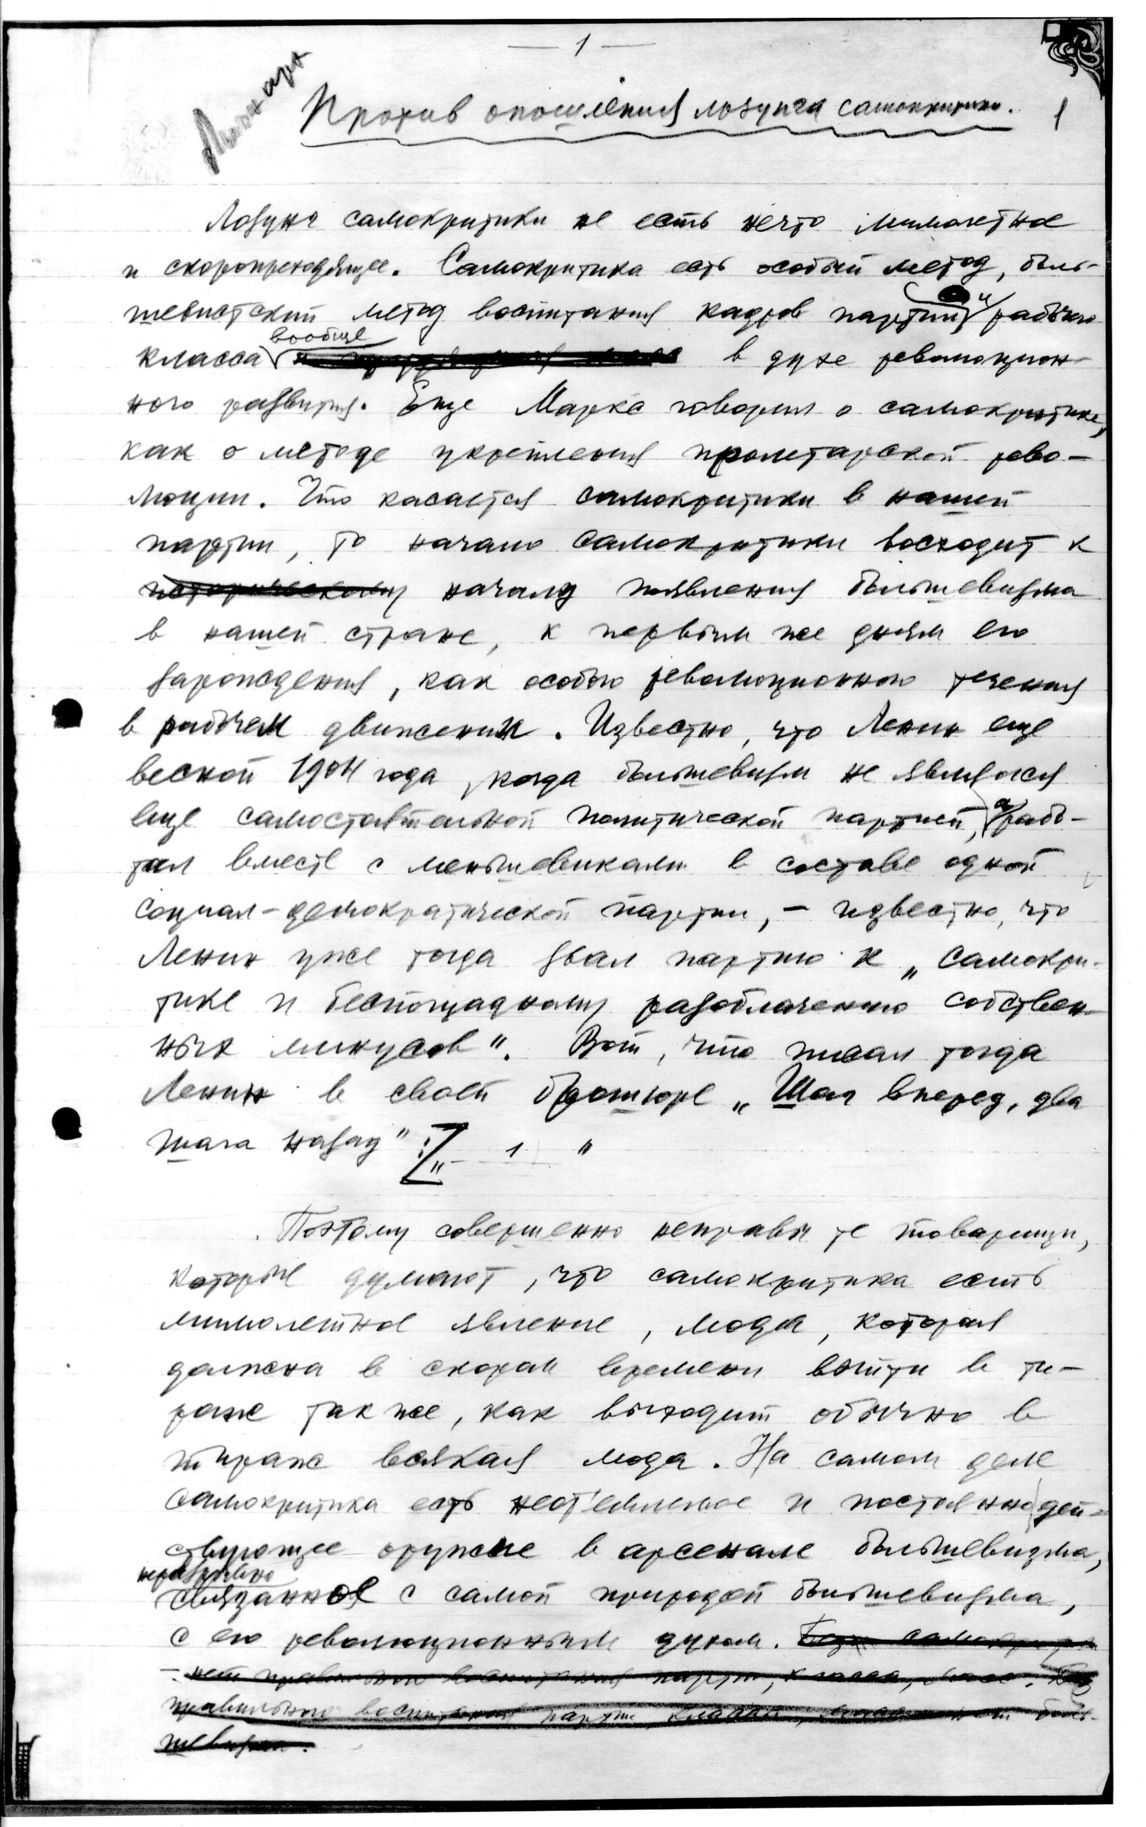 — 1 —
Против опошления лозунга самокритики.
1
Лозунг самокритики не есть нечто мимолетное
и скоропреходящее. Самокритика есть особый метод, боль-
шевистский метод воспитания кадров партии и рабочего
класса вообще в духе революцион-
ного развития. Еще Маркс говорил о самокритике,
как о методе укрепления пролетарской рево-
люции. Что касается самокритики в нашей
партии, то начало самокритики восходит к
историческому началу появления большевизма
в нашей стране, к первым же дням его
зарождения, как особого революционного течения
в рабочем движении. Известно, что Ленин еще
весной 1904 года, когда большевизм не являлся
еще самостоятельной политической партией, а рабо-
тал вместе с меньшевиками в составе одной
социал-демократической партии, – известно, что
Ленин уже тогда звал партию к „самокри-
тике и беспощадному разоблачению собствен-
ных минусов". Вот, что писал тогда
Ленин в своей брошюре „Шаг вперед, два
шага назад": „— 1 "
Поэтому совершенно неправы те товарищи,
которые думают, что самокритика есть
мимолетное явление, мода, которая
должна в скором времени выйти в ти-
раж так же, как выходит обычно в
тираж всякая мода. На самом деле
самокритика есть неот'емлемое и постоянно дей-
ствующее оружие в арсенале большевизма,
неразрывно
связанное с самой природой большевизма,
с его революционным духом. Без самокритики
– нет правильного воспитания партии, класса, масс. Без
правильного воспитания партии, класса, масс нет боль-
шевизма.